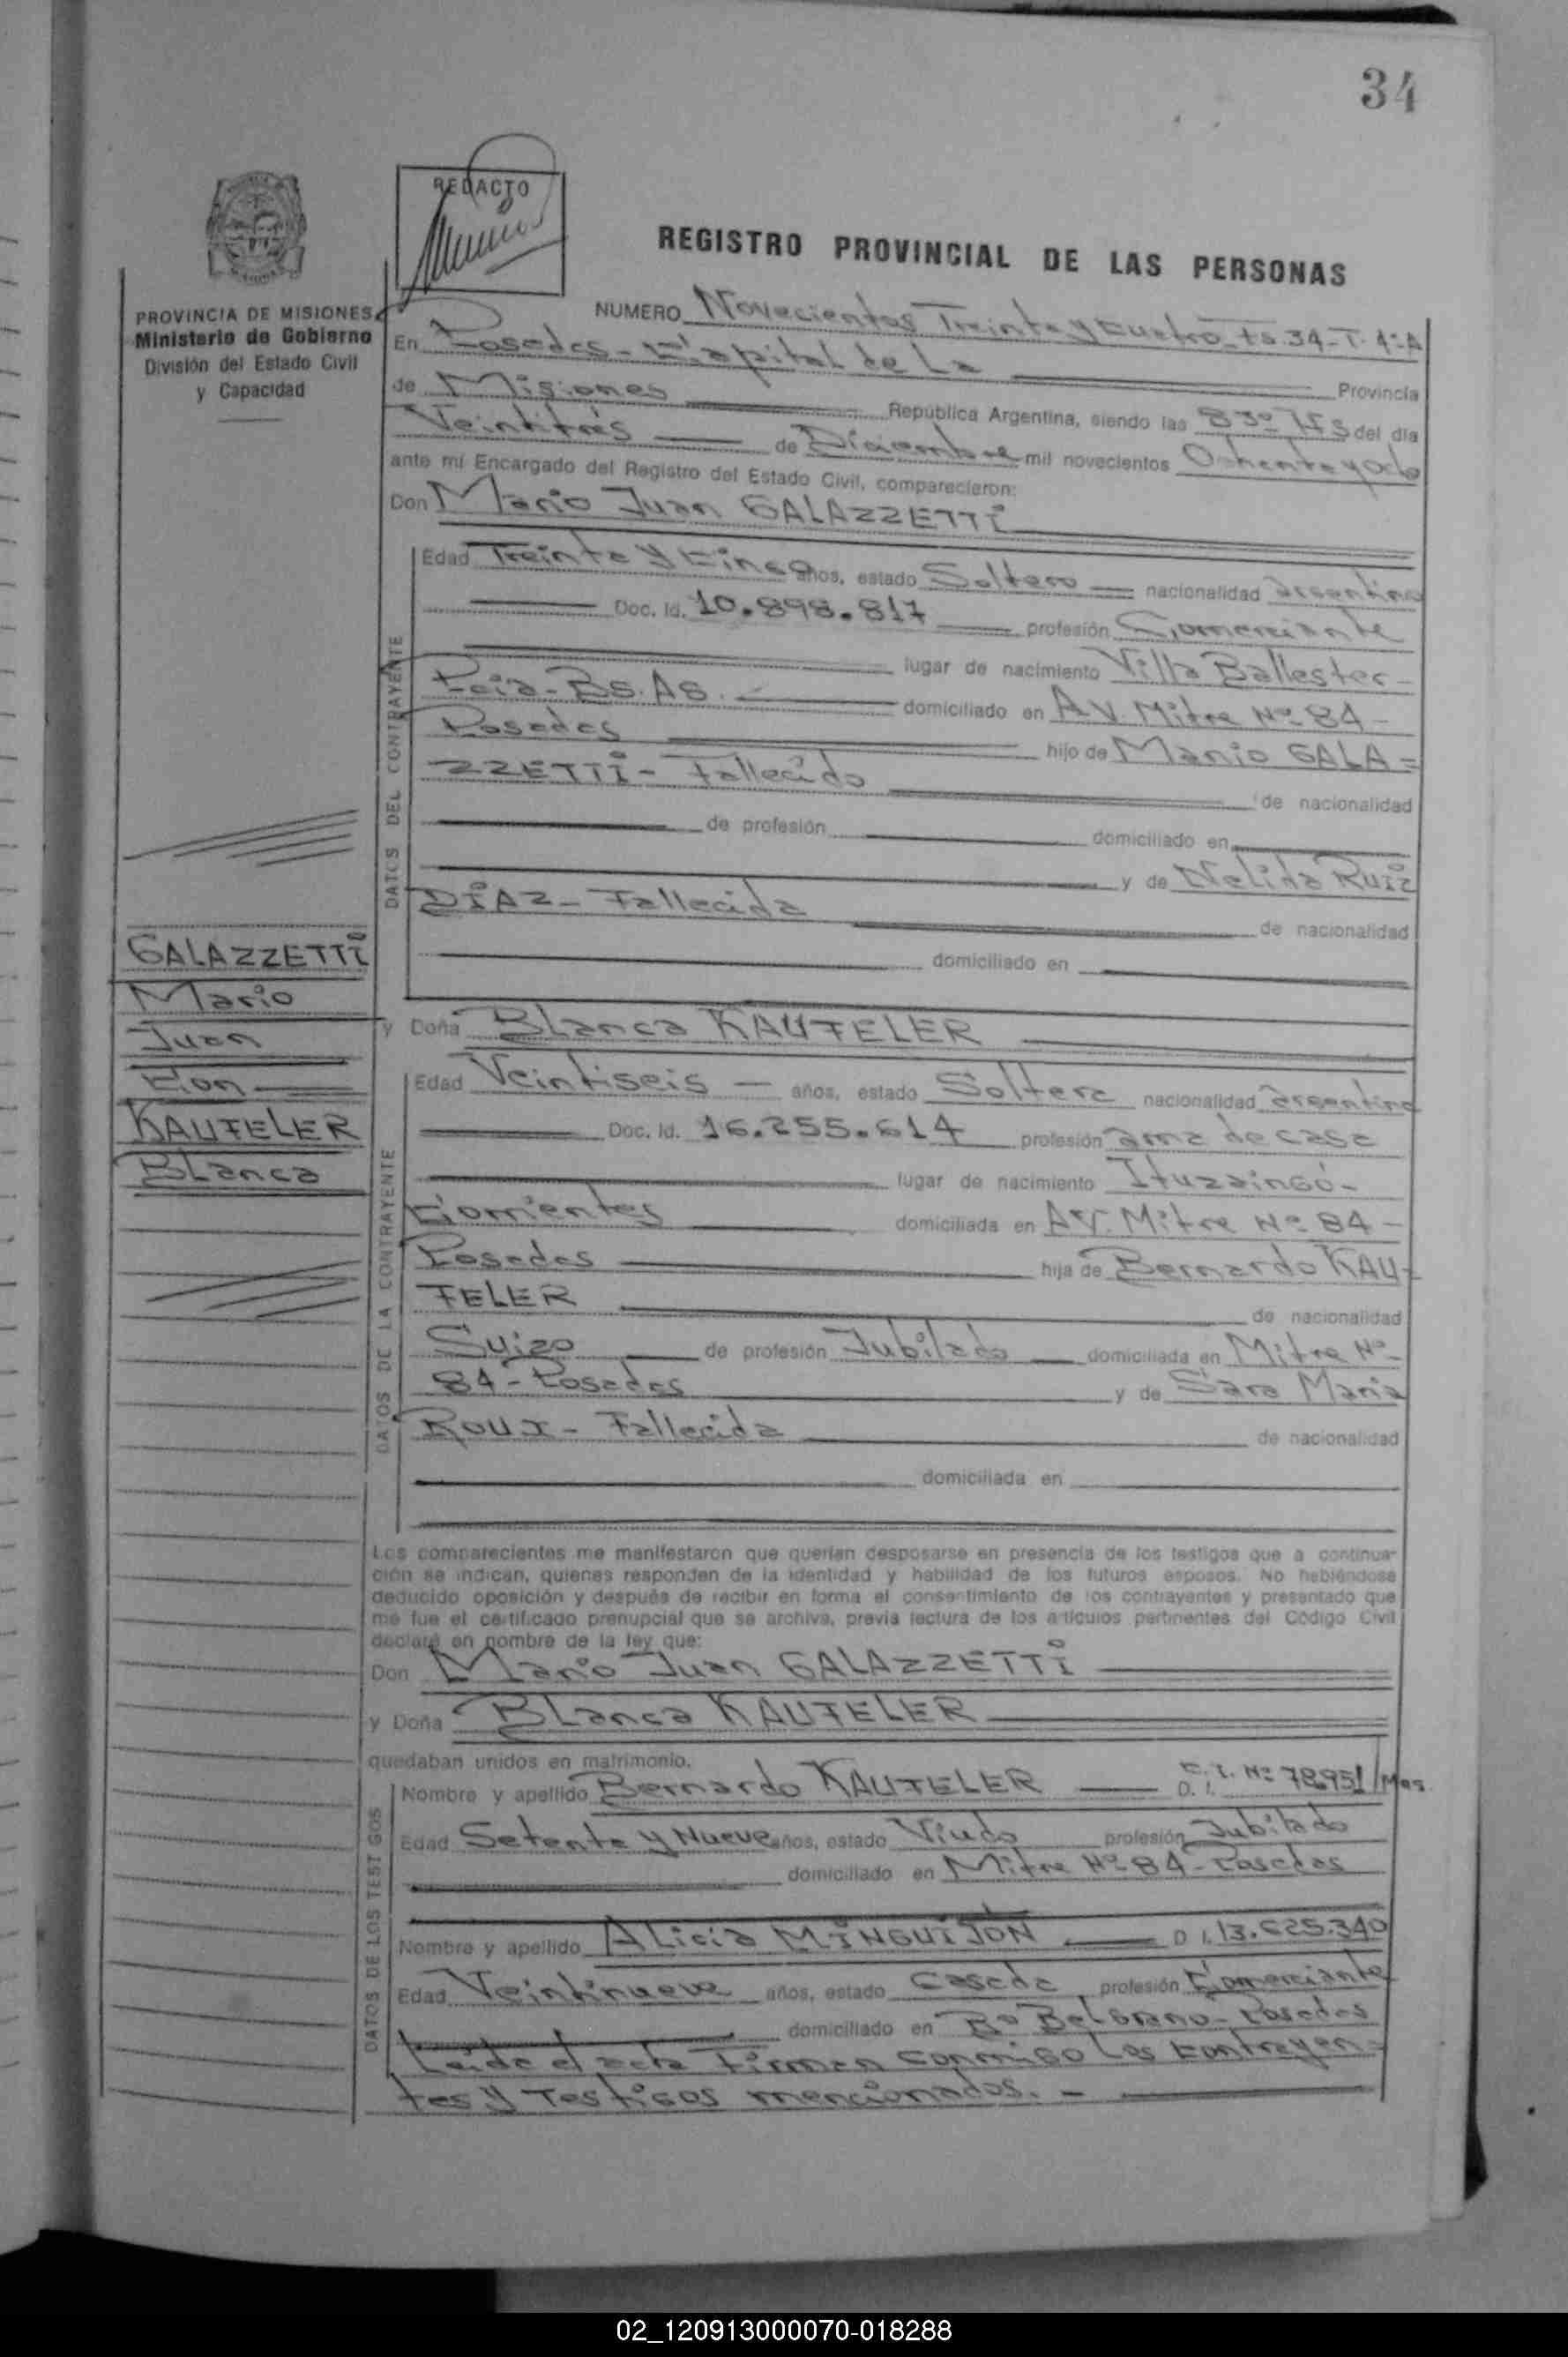 34
REDACTO
REGISTRO PROVINCIAL DE LAS PERSONAS
PROVINCIA DE MISIONES
Ministerio de Gobierno
División del Estado Civil
y Capacidad
NUMERO Novecientos Treinta y Cuatro Fs. 34-T. 4ºA
En Posadas - Capital de La Provincia
de Misiones República Argentina, siendo las 8 30 Hs del día
Veintitrés de Diciembre mil novecientos Ochenta y ocho
ante mí Encargado del Registro del Estado Civil, comparecieron:
Don Mario Juan GALAZZETTI
DATOS DEL CONTRAYENTE
Edad Treinta y Cinco años, estado Soltero nacionalidad argentino
Doc. Id. 10.898.817 profesión Comerciante
lugar de nacimiento Villa Ballester-
Pcia-Bs.As. domiciliado en AV. Mitre Nº 84-
Posadas hijo de Mario GALA=
ZZETTI- Fallecido de nacionalidad
de profesión domiciliado en
y de Nelida Ruiz
DiAZ- Fallecida de nacionalidad
domiciliado en
GALAZZETTi
Mario
Juan
Con
KAUFELER
Blanca
y Doña Blanca KAUFELER
DATOS DE LA CONTRAYENTE
Edad Veintiseis años, estado Soltera nacionalidad argentina
Doc. Id. 16.255.614 profesión ama de casa
lugar de nacimiento Ituzaingó-
Corrientes domiciliada en AV. Mitre Nº 84-
Posadas hija de Bernardo KAU-
FELER de nacionalidad
Suizo de profesión Jubilado domiciliada en Mitre Nº
84-Posadas y de Sara Maria
Roux- Fallecida de nacionalidad
domiciliada en
Los comparecientes me manifestaron que querían desposarse en presencia de los testigos que a continua-
ción se indican, quienes responden de la identidad y habilidad de los futuros esposos. No habiéndose
deducido oposición y después de recibir en forma el consentimiento de los contrayentes y presentado que
me fue el certificado prenupcial que se archiva, previa lectura de los artículos pertinentes del Código Civil
declaré en nombre de la ley que:
Don Mario Juan GALAZZETTi
y Doña Blanca KAUFELER
quedaban unidos en matrimonio.
DATOS DE LOS TESTIGOS
Nombre y apellido Bernardo KAUFELER D. I. C.I. Nº 78.951/Mns
Edad Setenta y Nueve años, estado Viudo profesión Jubilado
domiciliado en Mitre Nº 84-Posadas
Nombre y apellido Alicia MiNGUiJON D I. 13.625.340
Edad Veintinueve años, estado Casada profesión Comerciante
domiciliado en Bº Belgrano-Posadas
Leída el acta Firman conmigo Los Contrayen=
tes y Testigos mencionados.-
02_120913000070-018288